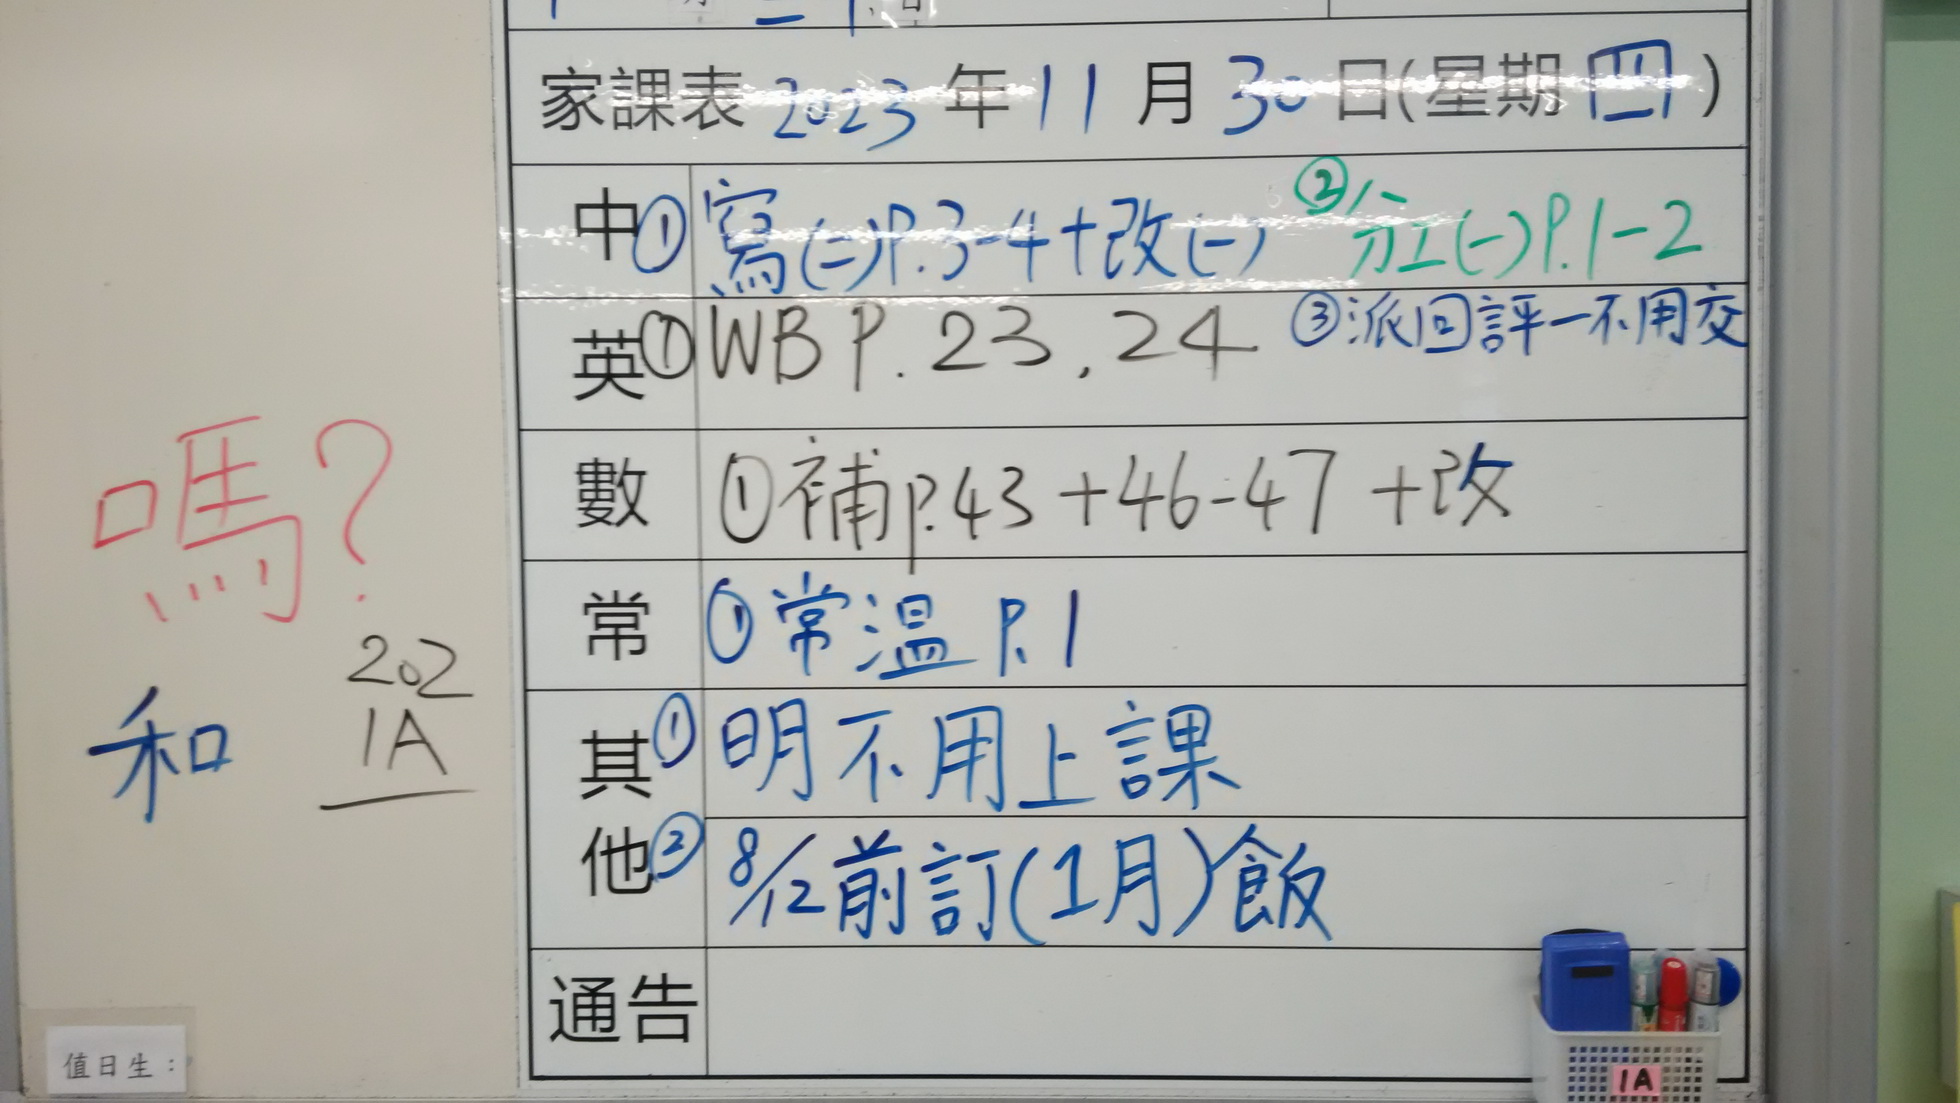 家課表 2023 年 11 月 30 日(星期四)
中 ① 寫(二)P.3-4+改(一) ② 分工(一)P.1-2
英 ① WB P. 23, 24 ③ 派回評一不用交
數 ① 補P.43 +46-47 +改
常 ① 常溫 P.1
其他 ① 明不用上課
② 8/12前訂(1月)飯
通告
嗎?
202
1A
和
值日生:
1A